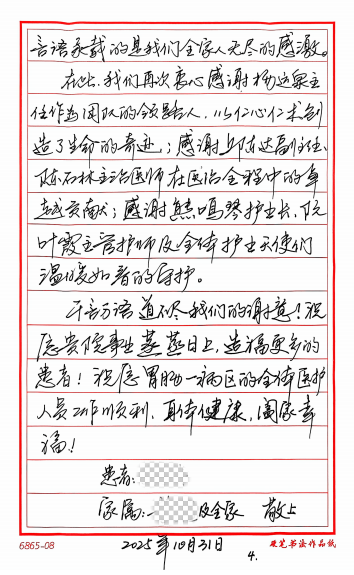 言语承载的是我们全家人无尽的感激。
在此，我们再次衷心感谢杨这泉主
任作为团队的领路人，以仁心仁术创
造了生命的奇迹；感谢邱陈达副主任、
陈石林主治医师在医治全程中的卓
越贡献；感谢熊鸣琴护士长、阮
叶霞主管护师及全体护士天使们
温暖如春的守护。
千言万语道不尽我们的谢意！祝
愿贵院事业蒸蒸日上，造福更多的
患者！祝愿胃肠一病区的全体医护
人员工作顺利，身体健康，阖家幸
福！
患者：
家属：及全家 敬上
2025年10月31日
6865-08
硬笔书法作品纸
4.